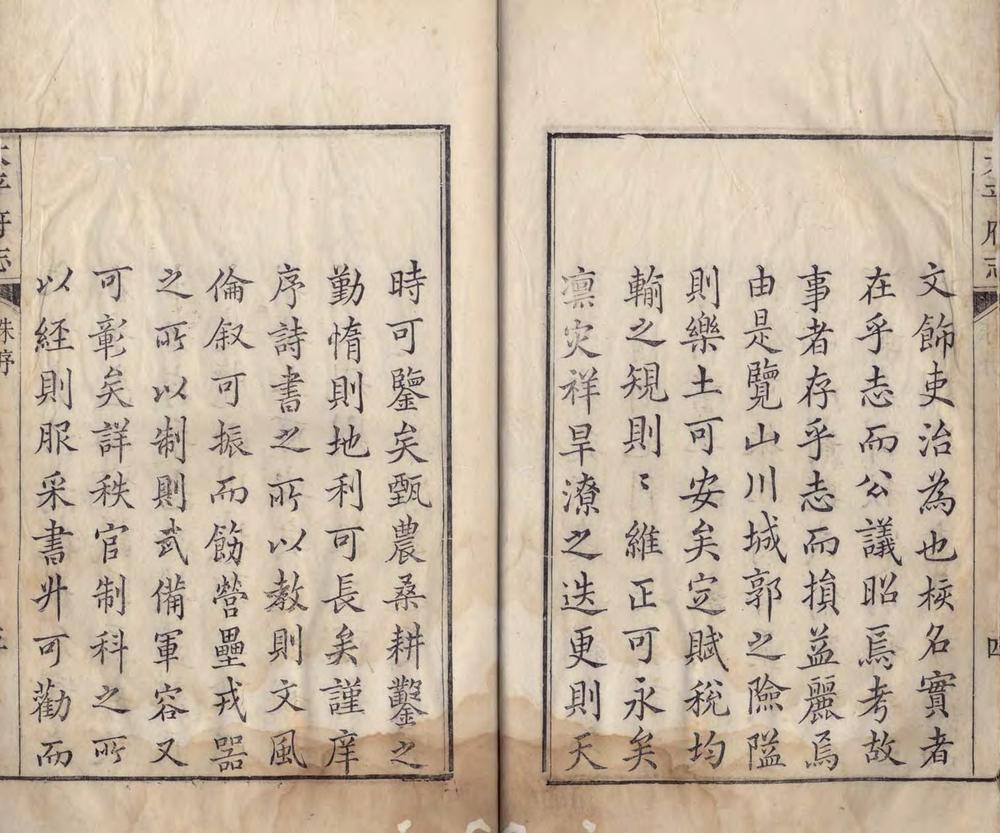 太平府志
四
文飾吏治為也核名實者
在乎志而公議昭焉考故
事者存乎志而損益麗焉
由是覽山川城郭之險隘
則樂土可安矣定賦稅均
輸之規則〻維正可永矣
凛灾祥旱潦之迭更則天
時可鑒矣甄農桑耕鑿之
勤惰則地利可長矣謹庠
序詩書之所以教則文風
倫叙可振而飭營壘戎器
之所以制則武備軍容又
可彰矣詳秩官制科之所
以經則服采書升可勸而
太平府志
朱序